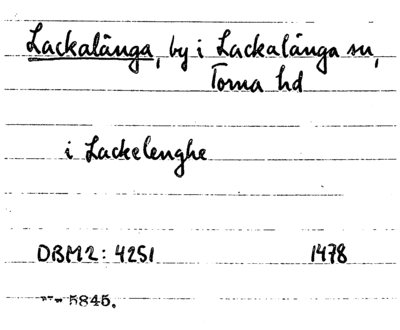 Lackalänga, by i Lackalänga sn,
Torna hd
i Lackelenghe
DBM2: 4251 1478
5845.